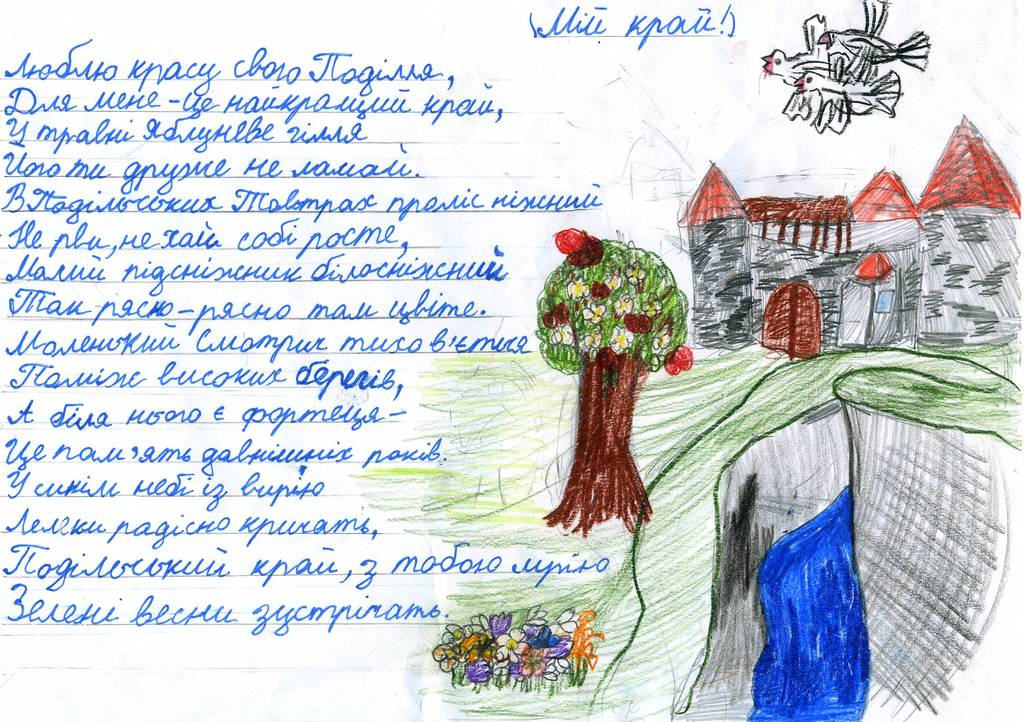 (Мій край!)
Люблю красу свого Поділля,
Для мене - це найкращий край,
У травні яблуневе гілля
Його ти друже не ламай.
В Подільських Товтрах проліс ніжний
Не рви, не хай собі росте,
Малий підсніжник білосніжний
Так рясно-рясно там цвіте.
Маленький Смотрич тихо в'ється
Поміж високих берегів,
А біля нього є фортеця-
Це пам'ять давнішніх років.
У синім небі із вирію
Лелеки радісно кричать,
Подільський край, з тобою мрію
Зелені весни зустрічать.